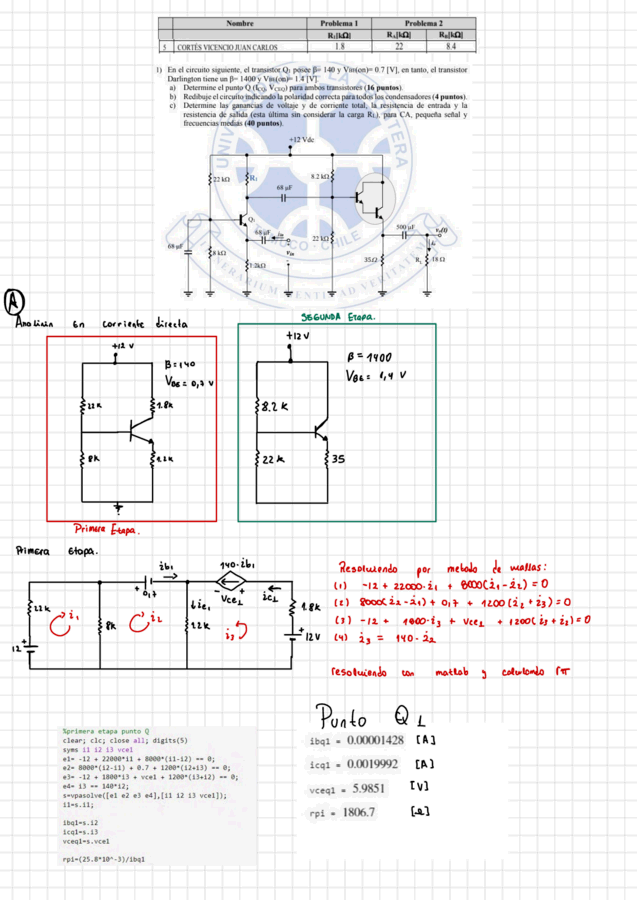 Nombre Problema 1 Problema 2
R₁[kΩ] R_A[kΩ] R_B[kΩ]
5 CORTÉS VICENCIO JUAN CARLOS 1.8 22 8.4
1) En el circuito siguiente, el transistor Q₁ posee β= 140 y V_BE(on)= 0.7 [V], en tanto, el transistor
Darlington tiene un β= 1400 y V_BE(on)= 1.4 [V].
a) Determine el punto Q (I_CQ, V_CEQ) para ambos transistores (16 puntos).
b) Redibuje el circuito indicando la polaridad correcta para todos los condensadores (4 puntos).
c) Determine las ganancias de voltaje y de corriente total, la resistencia de entrada y la
resistencia de salida (esta última sin considerar la carga R_L), para CA, pequeña señal y
frecuencias medias (40 puntos).
+12 Vdc
22 kΩ R₁ 8.2 kΩ
68 μF
Q₁
68 μF i_in 500 μF v_o(t)
68 μF 8 kΩ v_in 22 kΩ
1.2kΩ 35Ω R_L 18 Ω
A
Analisis en corriente directa
SEGUNDA Etapa.
+12 V
β=140
V_BE = 0,7 V
22 K 1.8K
8K 1.2K
Primera Etapa.
+12 V
β = 1400
V_BE = 1,4 V
8.2 K
22 K 35
Primera etapa.
ib₁ 140·ib₁
+ 0,7 - Vce₁ + ic₁
22 K i₁ 8K i₂ ie₁ 1.2K i₃ 1.8K
12 12V
Resolviendo por metodo de mallas:
(1) -12 + 22000·i₁ + 8000(i₁-i₂) = 0
(2) 8000(i₂-i₁) + 0,7 + 1200(i₂+i₃) = 0
(3) -12 + 1800·i₃ + Vce₁ + 1200(i₃+i₂) = 0
(4) i₃ = 140·i₂
resolviendo con matlab y calculando rπ
%primera etapa punto Q
clear; clc; close all; digits(5)
syms i1 i2 i3 vce1
e1= -12 + 22000*i1 + 8000*(i1-i2) == 0;
e2= 8000*(i2-i1) + 0.7 + 1200*(i2+i3) == 0;
e3= -12 + 1800*i3 + vce1 + 1200*(i3+i2) == 0;
e4= i3 == 140*i2;
s=vpasolve([e1 e2 e3 e4],[i1 i2 i3 vce1]);
i1=s.i1;
ibq1=s.i2
icq1=s.i3
vceq1=s.vce1
rpi=(25.8*10^-3)/ibq1
Punto Q 1
ibq1 = 0.00001428 [A]
icq1 = 0.0019992 [A]
vceq1 = 5.9851 [V]
rpi = 1806.7 [Ω]